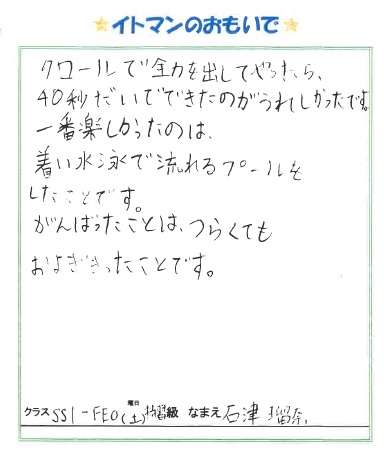 イトマンのおもいで
クロールで全力を出してやったら、
40秒だいでできたのがうれしかったです。
一番楽しかったのは、
着い水泳で流れるプールを
したことです。
がんばったことは、つらくても
およぎきったことです。
クラス SS1-FE0(土)特習級 なまえ 石津 瑠奈
曜日